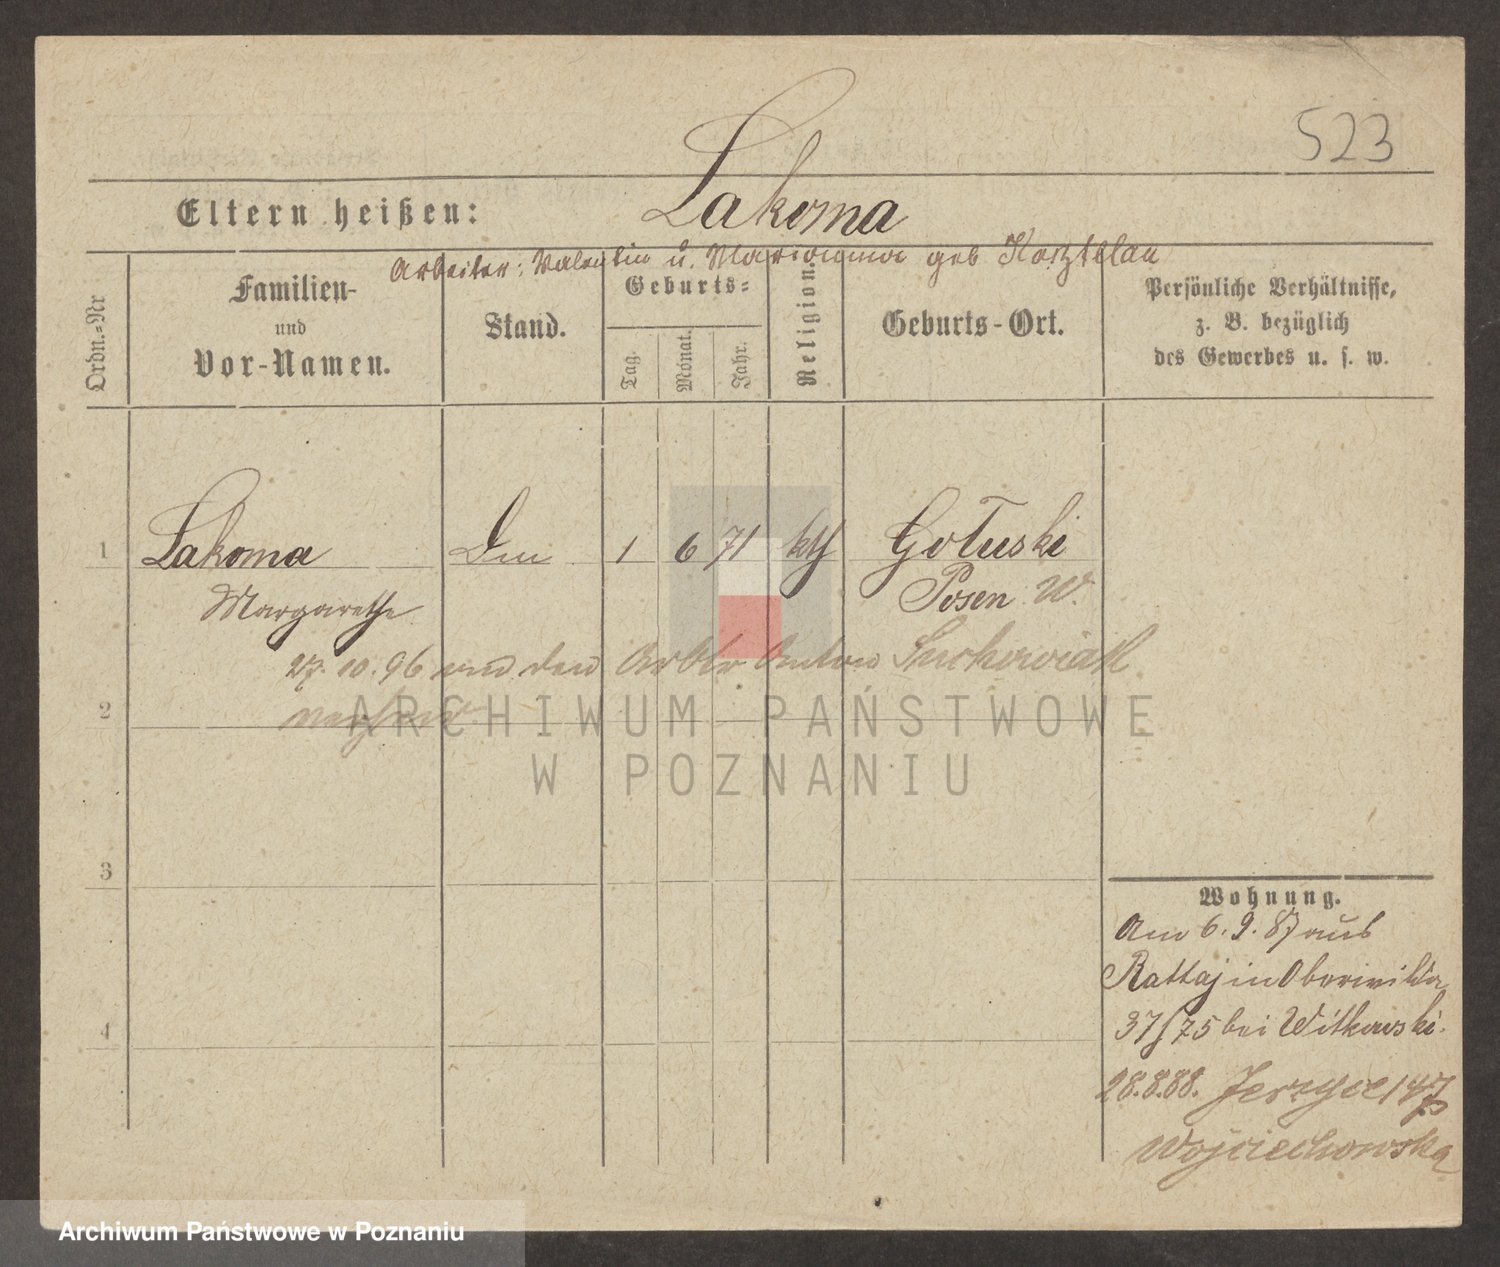 523
Lakoma
Eltern heißen:
Arbeiter: Valentin u. Marianna geb
Ordn.=Nr
Familien-
und
Vor-Namen.
Stand.
Geburts=
Tag.
Monat.
Jahr.
Religion.
Geburts-Ort.
Persönliche Verhältnisse,
z. B. bezüglich
des Gewerbes u. s. w.
1 Lakoma 1 6 71 kth Gotuski
Margarethe Posen W.
27. 10. 96 den Anton Suchowiak
2
3
4
Wohnung.
Am 6. 9. 87 aus
Rattaj in Oberwilda
37/75 bei Witkowski.
28.8.88. Jerzyce 147
Wojciechowska
ARCHIWUM PAŃSTWOWE
W POZNANIU
Archiwum Państwowe w Poznaniu